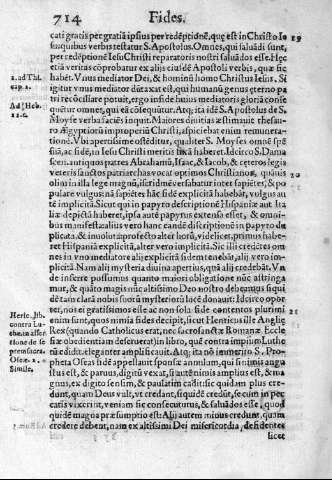 714 Fides.
cati gratis per gratiã ipsius per redẽptionẽ, quę est in Christo Ie
su, quibus verbis testatur S. Apostolus. Omnes, qui saluãdi sunt,
per redẽptionẽ Iesu Christi reparatoris nostri saluãdos esse. Hęc
etiã veritas cõprobatur ex alijs eiusdẽ Apostoli verbis, quæ sic
habẽt. Vnus mediator Dei, & hominũ homo Christus Iesus. Si
igitur vnus mediator
tri recõciliare potuit, ergo in fide huius mediatoris gloriã conse
quũtur omnes, qui eã cõsequũtur. Atq; ita idẽ S. Apostolus de S.
Moyse verba faciẽs inquit. Maiores diuitias æstimauit thesau-
ro Ægyptiorũ improperiũ Christi, aspiciebat enim remunera-
tionẽ. Vbi apertissime ostẽditur, qualiter S. Moyses omnẽ spẽ
suã, ac fidẽ, in Iesu Christi meritis fixã haberet. Id circo S. Dama
scen. antiquos patres Abrahamũ, Isaac, & Iacob, & ceteros legis
veteris sanctos patriarchas vocat optimos Christianos, quãuis
olim in illa lege magni, iurisq; versabantur inter sapiẽtes, & po
pulare vulgus: nã sapiẽtes hãc fidẽ explicitã habebãt, vulgus au
tẽ implicitã. Sicut qui in papyro descriptionẽ Hispaniæ aut Ita
liæ depictã haberet, ipsa autẽ papyrus extensa esset, & omni-
bus manifesta: alius vero hanc eandẽ discriptionẽ in papyro du
plicata, & inuoluta: profecto alter horũ, videlicet, primus habe
ret Hispaniã explicitã, alter vero implicitã. Sic illi crediti omnes
nes in vno mediatore alij explicitã fidem tenebãt, alij vero im-
plicitã. Nam alij mysteria diuina apertius, quã alij credebãt. Vn
de inferre possumus quanto maiori obligatione nũc astringa
mur, & quãto magis nũc altissimo Deo nostro debemus qui
dẽ tam clarã nobis suorũ mysteriorũ lucẽ donauit: Id circo opor
ter, nos ei gratissimos esse ac non sola fide contentos plurimi
enim sunt, quos nimia fides decipit, sicut Henricus ille Angliæ
Rex (quandiu Catholicus erat, nec sacrosanctæ Romanæ Eccle
siæ obedientiam deseruerat) in libro, quẽ contra impium Luthe
rũ edidit, eleganter amplificauit. Atq; ita nõ immerito S. Pro-
pheta Oseas fidẽ appellauit sponsæ annulum, qui si nimis angu
stus est, & paruus, digitũ vexat, si autẽ nimis amplius est, & ma
gnus, ex digito sensim, & paulatim cadit: sic quidam plus cre-
dunt, quam Deus vult, vt credant, siquidẽ credũt, se cum in pec
catis vixerint, veniam sic consecuturos, & saluãdos esse, quod
quidẽ magna præsumptio est: Alij autem minus credunt, quam
credere debeat, nam ex altissimi Dei misericordia, desidentes
licet
19
20
21
1. ad Thi.
cap. 2.
Ad Heb.
11. c.
Heric. lib.
contra Lu
theru in asse
rtione de se
ptem sacra.
Oseæ. 2.
Simile.